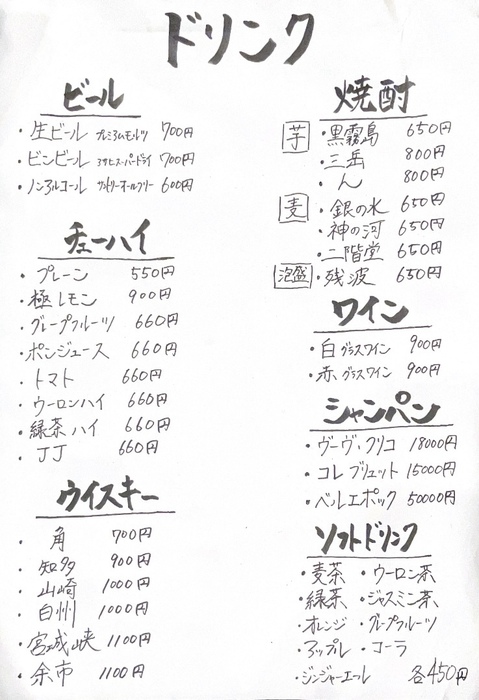 ドリンク
ビール
・生ビール プレミアムモルツ 700円
・ビンビール アサヒスーパードライ 700円
・ノンアルコール サントリーオールフリー 600円
チューハイ
・プレーン 550円
・極レモン 900円
・グレープフルーツ 660円
・ポンジュース 660円
・トマト 660円
・ウーロンハイ 660円
・緑茶ハイ 660円
・JJ 660円
ウイスキー
・角 700円
・知多 900円
・山崎 1000円
・白州 1000円
・宮城峡 1100円
・余市 1100円
焼酎
芋 ・黒霧島 650円
・三岳 800円
・ん 800円
麦 ・銀の水 650円
・神の河 650円
・二階堂 650円
泡盛 ・残波 650円
ワイン
・白 グラスワイン 900円
・赤 グラスワイン 900円
シャンパン
・ヴーヴ・クリコ 18000円
・コレ ブリュット 15000円
・ベルエポック 50000円
ソフトドリンク
・麦茶 ・ウーロン茶
・緑茶 ・ジャスミン茶
・オレンジ ・グレープフルーツ
・アップル ・コーラ
・ジンジャーエール 各450円